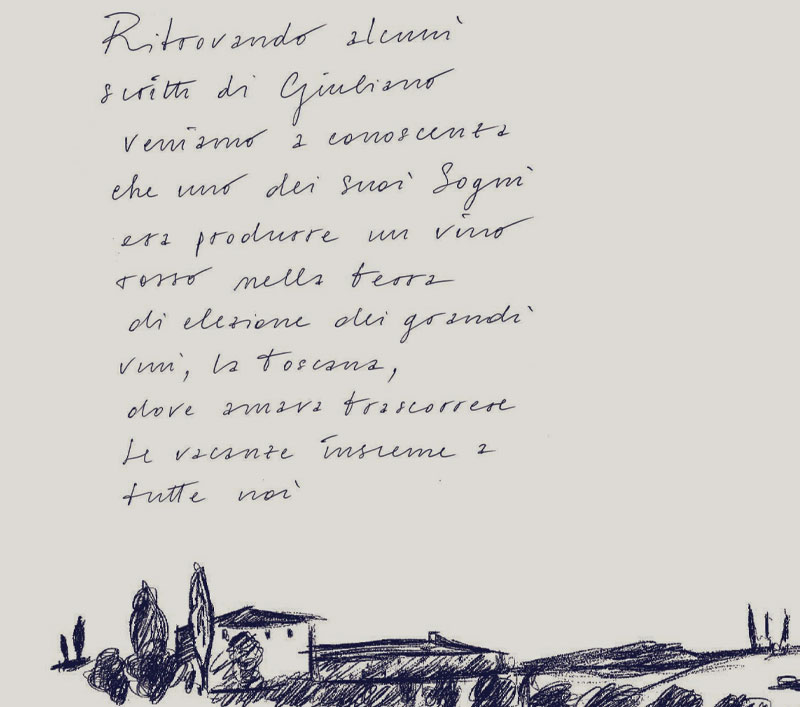 Ritrovando alcuni
scritti di Giuliano
veniamo a conoscenza
che uno dei suoi sogni
era produrre un vino
rosso nella terra
di elezione dei grandi
vini, la Toscana,
dove amava trascorrere
le vacanze insieme a
tutte noi